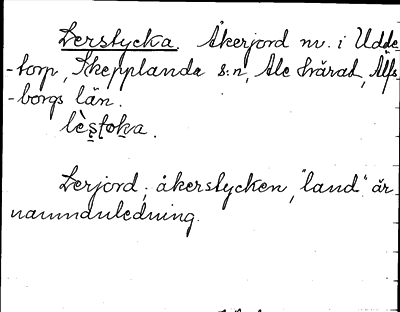 Lerstycka. Åkerjord nv. i Udde
-torp, Skepplanda s:n, Ale härad, Älfs
-borgs län.
lèṣṭoka.
Lerjord, åkerstycken, "land" är
namnduledning.